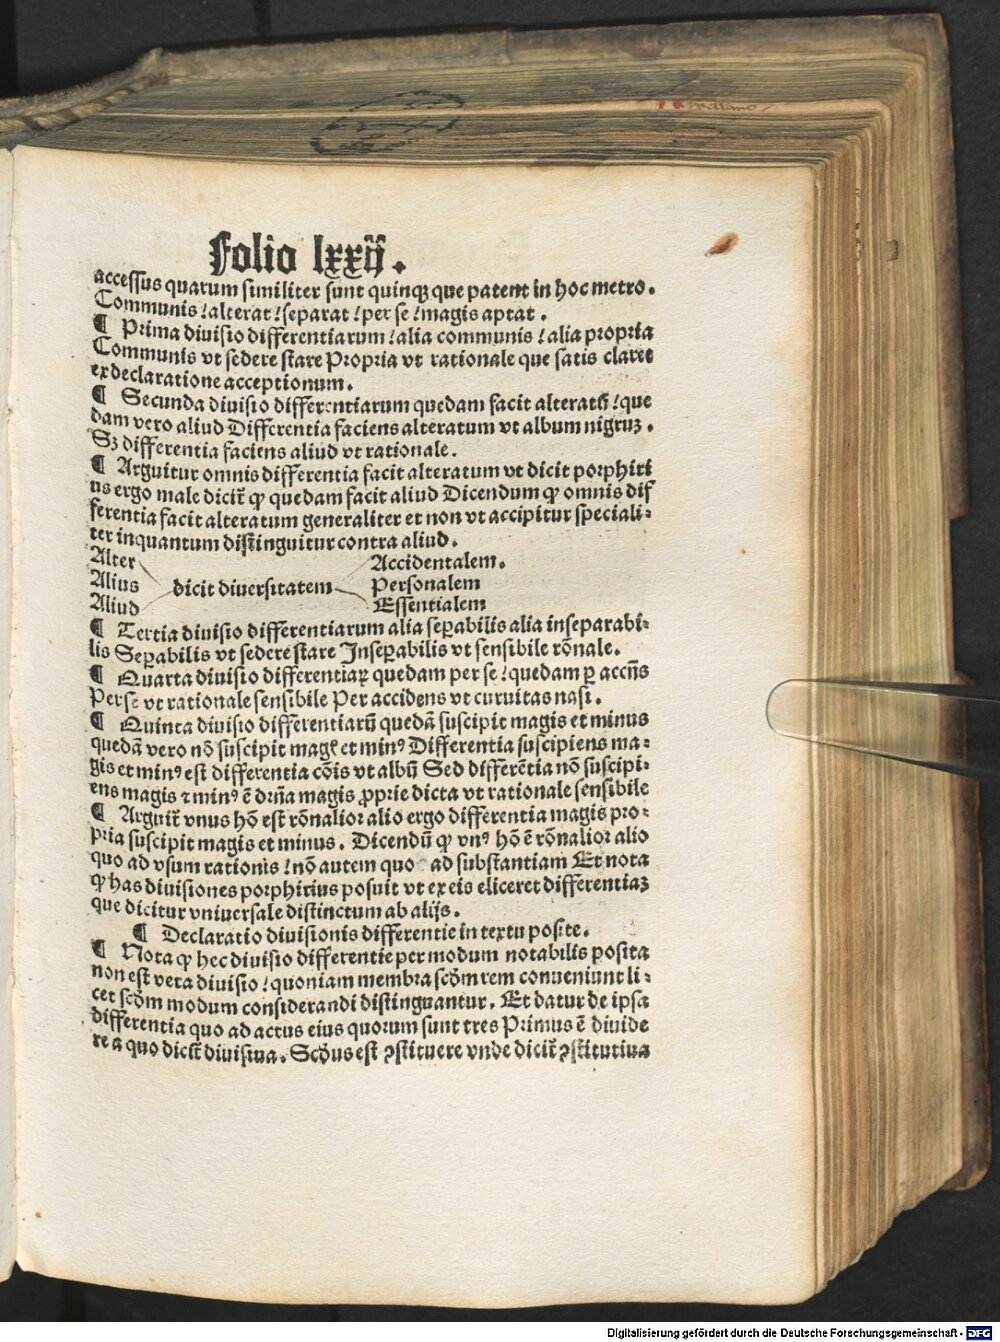 Folio lxxij.
accessus quarum similiter sunt quinqꝫ que patent in hoc metro.
Communis / alterat / separat / per se / magis aptat.
¶ Prima diuisio differentiarum / alia communis / alia propria
Communis vt sedere stare Propria vt rationale que satis claret
ex declaratione acceptionum.
¶ Secunda diuisio differentiarum quedam facit alteratū / que
dam vero aliud Differentia faciens alteratum vt album nigruꝫ.
Sꝫ differentia faciens aliud vt rationale.
¶ Arguitur omnis differentia facit alteratum vt dicit porphiri
us ergo male dicit̄ ꝙ quedam facit aliud Dicendum ꝙ omnis dif
ferentia facit alteratum generaliter et non vt accipitur speciali⸗
ter inquantum distinguitur contra aliud.
Alter Accidentalem.
Alius dicit diuersitatem Personalem
Aliud Essentialem
¶ Tertia diuisio differentiarum alia seꝑabilis alia inseparabi⸗
lis Seꝑabilis vt sedere stare Inseꝑabilis vt sensibile rōnale.
¶ Quarta diuisio differentiaꝝ quedam per se / quedam ꝑ accñs
Per se vt rationale sensibile Per accidens vt curuitas nasi.
¶ Quinta diuisio differentiarū quedā suscipit magis et minus
quedā vero nō suscipit magꝭ et minꝰ Differentia suscipiens ma⸗
gis et minꝰ est differentia cōis vt albū Sed differētia nō suscipi⸗
ens magis ⁊ minꝰ ē drn̄a magis ꝓprie dicta vt rationale sensibile
¶ Arguit̄ vnus hō est rōnalior alio ergo differentia magis pro⸗
pria suscipit magis et minus. Dicendū ꝙ vnꝰ hō ē rōnalior alio
quo ad vsum rationis / nō autem quo ad substantiam Et nota
ꝙ has diuisiones porphirius posuit vt ex eis eliceret differentiaꝫ
que dicitur vniuersale distinctum ab alijs.
¶ Declaratio diuisionis differentie in textu posite.
¶ Nota ꝙ hec diuisio differentie per modum notabilis posita
non est vera diuisio / quoniam membra scd̄m rem conueniunt li⸗
cet scd̄m modum considerandi distinguantur. Et datur de ipsa
differentia quo ad actus eius quorum sunt tres Primus ē diuide
re a quo dicit̄ diuisiua. Scd̄us est ꝯstituere vnde dicit̄ ꝯstitutiua
Digitalisierung gefördert durch die Deutsche Forschungsgemeinschaft - DFG